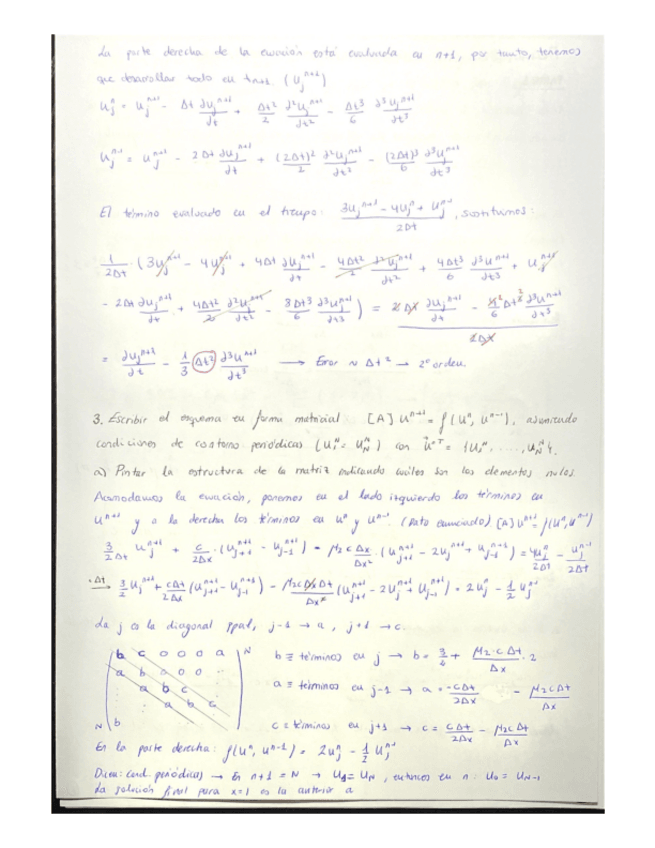 La parte derecha de la ecuación está evaluada en n+1, por tanto, tenemos
que desarrollar todo en t_{n+1}. (U_j^{n+1})
U_j^n = U_j^{n+1} - Δt ∂U_j^{n+1}/∂t + Δt²/2 ∂²U_j^{n+1}/∂t² - Δt³/6 ∂³U_j^{n+1}/∂t³
U_j^{n-1} = U_j^{n+1} - 2Δt ∂U_j^{n+1}/∂t + (2Δt)²/2 ∂²U_j^{n+1}/∂t² - (2Δt)³/6 ∂³U_j^{n+1}/∂t³
El término evaluado en el tiempo: (3U_j^{n+1} - 4U_j^n + U_j^{n-1})/2Δt, sustituimos:
1/2Δt · (3U_j^{n+1} - 4U_j^{n+1} + 4Δt ∂U_j^{n+1}/∂t - 4Δt²/2 ∂²U_j^{n+1}/∂t² + 4Δt³/6 ∂³U_j^{n+1}/∂t³ + U_j^{n+1}
- 2Δt ∂U_j^{n+1}/∂t + 4Δt²/2 ∂²U_j^{n+1}/∂t² - 8Δt³/6 ∂³U_j^{n+1}/∂t³) = (2Δt ∂U_j^{n+1}/∂t - 4/6 Δt³ ∂³U_j^{n+1}/∂t³)/2Δt
= ∂U_j^{n+1}/∂t - 1/3 Δt² ∂³U^{n+1}/∂t³ → Error ~ Δt² → 2º orden.
3. Escribir el esquema en forma matricial [A] U^{n+1} = f(U^n, U^{n-1}), asumiendo
condiciones de contorno periódicas (U_1^n = U_N^n) con U^{nT} = {U_1^n, ..., U_N^n}.
a) Pintar la estructura de la matriz indicando cuáles son los elementos nulos
Acomodamos la ecuación, ponemos en el lado izquierdo los términos en
U^{n+1} y a la derecha los términos en U^n y U^{n-1}. (Dato enunciado) [A] U^{n+1} = f(U^n, U^{n-1})
3/2Δt U_j^{n+1} + c/2Δx · (U_{j+1}^{n+1} - U_{j-1}^{n+1}) - μ₂ c Δx/Δx² · (U_{j+1}^{n+1} - 2U_j^{n+1} + U_{j-1}^{n+1}) = 4U_j^n/2Δt - U_j^{n-1}/2Δt
·Δt → 3/2 U_j^{n+1} + cΔt/2Δx (U_{j+1}^{n+1} - U_{j-1}^{n+1}) - μ₂cΔxΔt/Δx² (U_{j+1}^{n+1} - 2U_j^{n+1} + U_{j-1}^{n+1}) = 2U_j^n - 1/2 U_j^{n-1}
La j es la diagonal ppal, j-1 → a, j+1 → c.
b c o o o a N
a b a o o
a b c
a b c
N b
b ≡ términos en j → b = 3/2 + μ₂·cΔt/Δx · 2
a ≡ términos en j-1 → a = -cΔt/2Δx - μ₂cΔt/Δx
c ≡ términos en j+1 → c = cΔt/2Δx - μ₂cΔt/Δx
En la parte derecha: f(U^n, U^{n-1}) = 2U_j^n - 1/2 U_j^{n-1}
Dicen: cond. periódicas → En n+1 = N → U_1 = U_N, entonces en n: U_0 = U_{N-1}
La solución final para x=1 es la anterior a